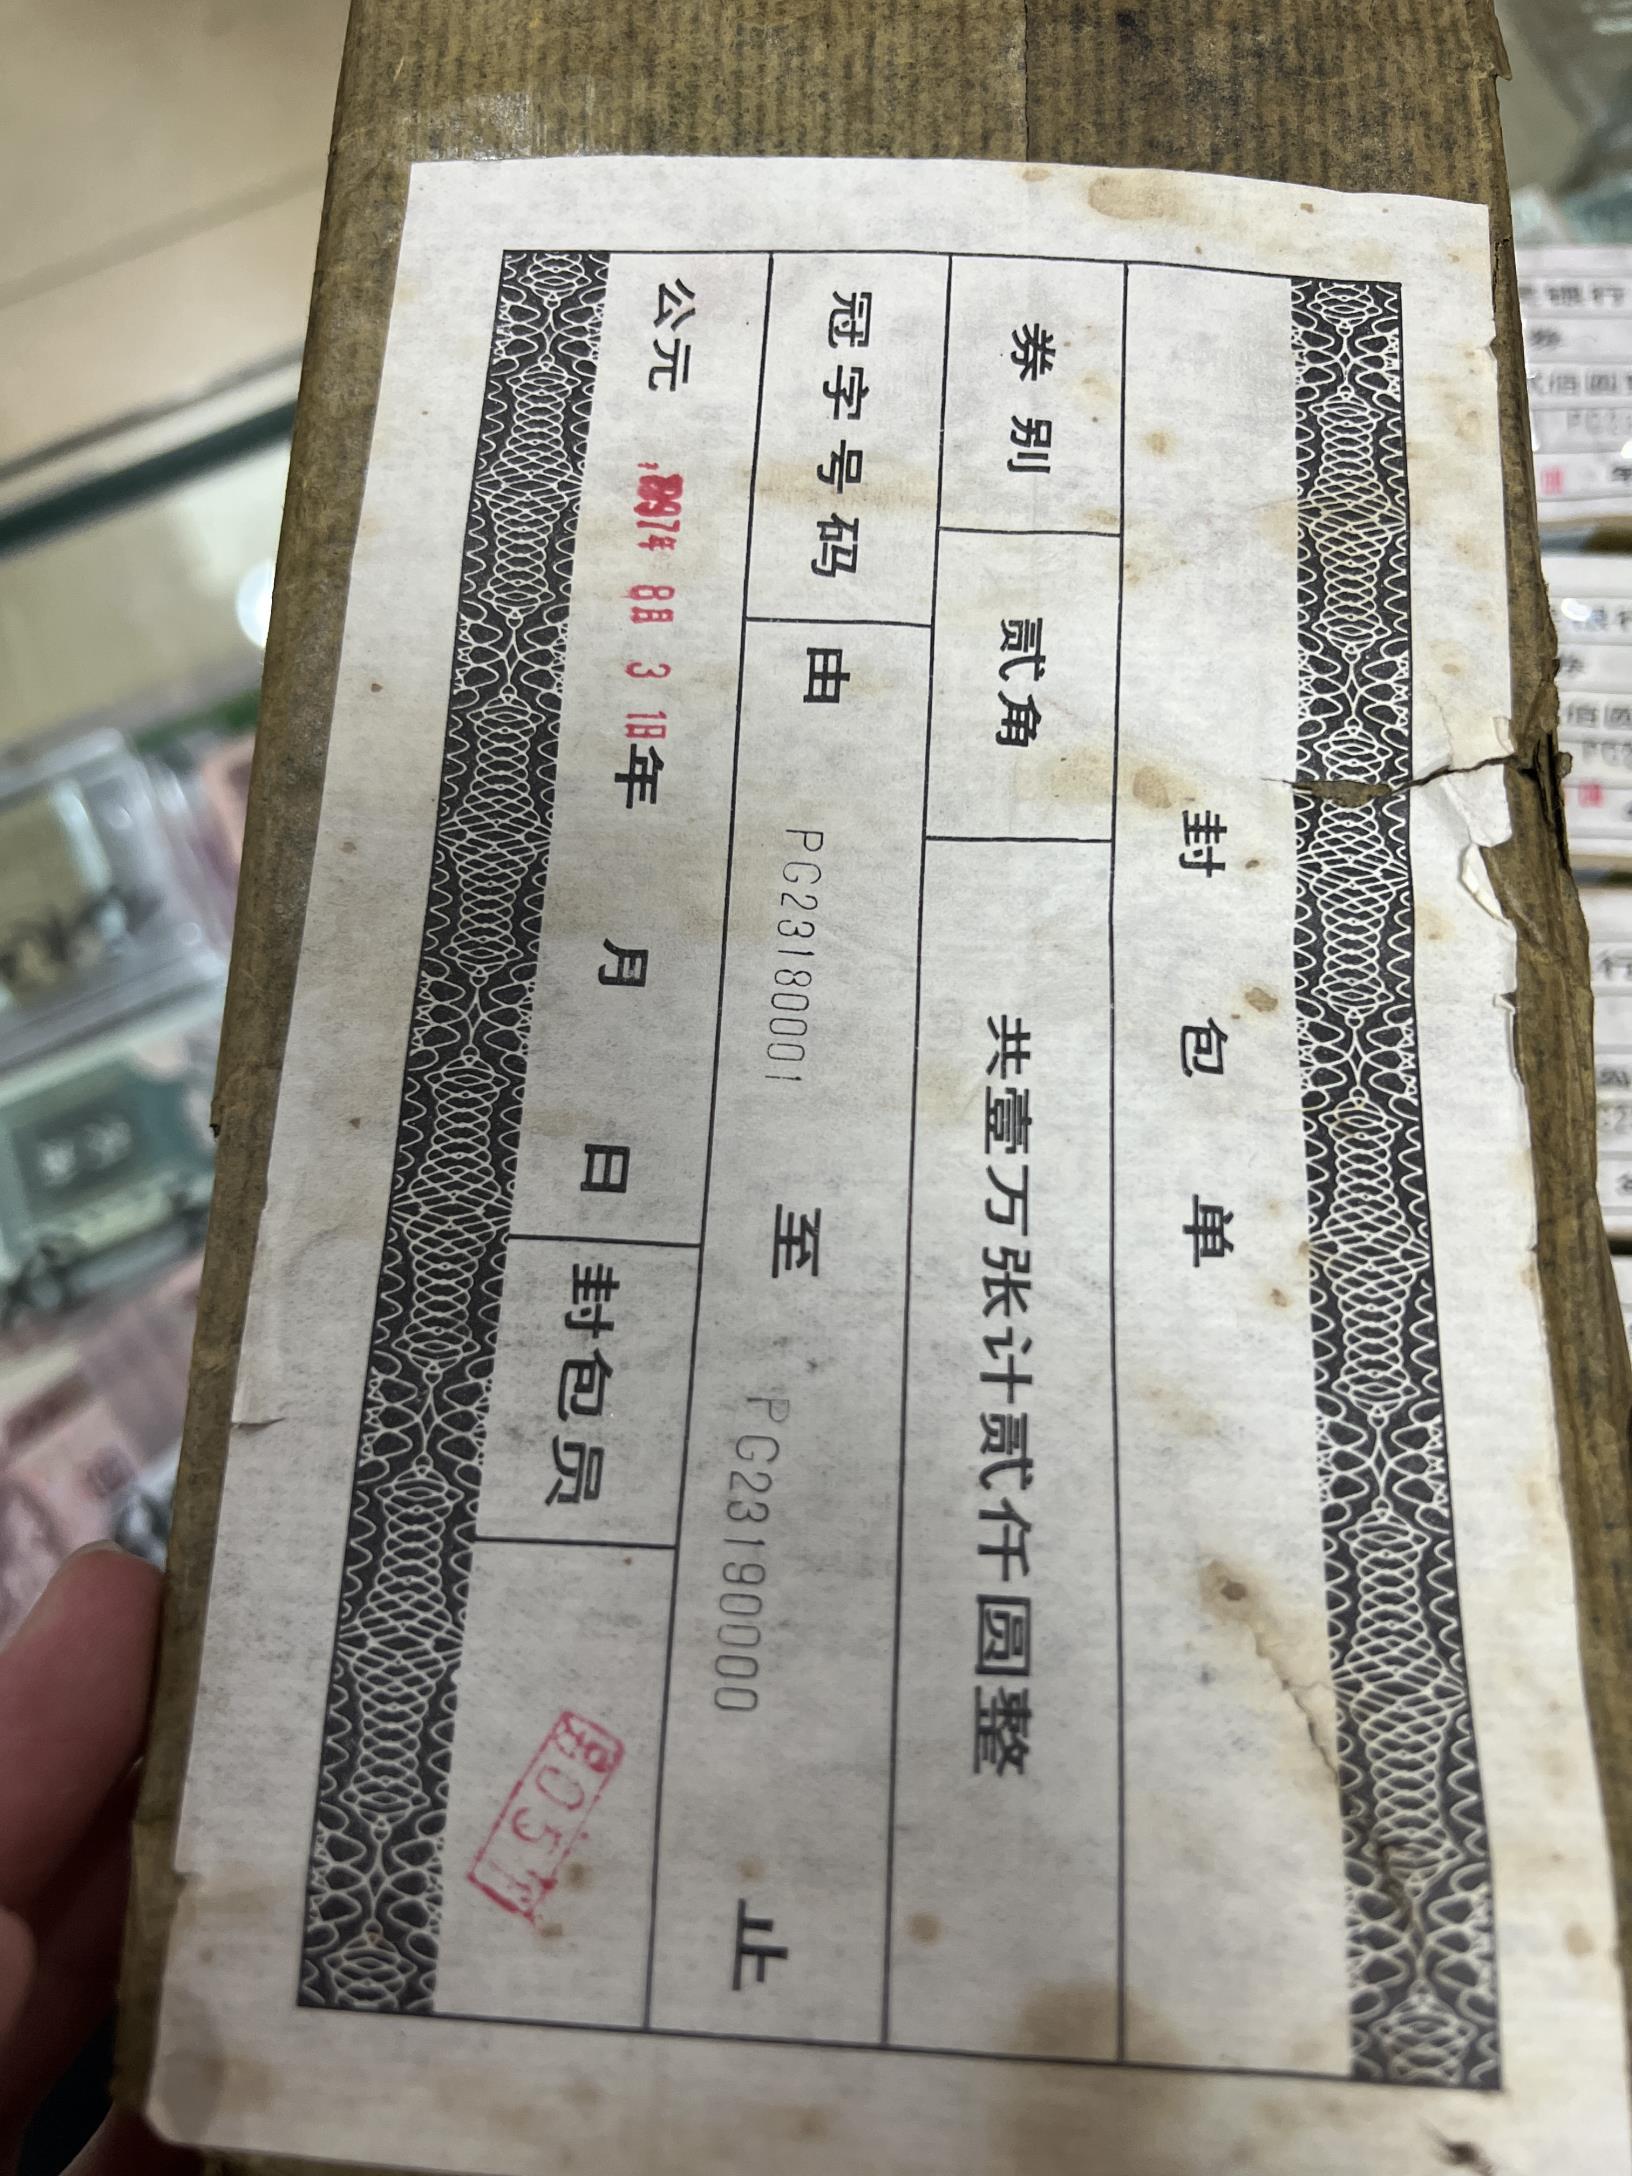 封包单
券别 贰角 共壹万张计贰仟圆整
冠字号码 由 PG23180001 至 PG23190000 止
公元 8月 31日年 月 日 封包员